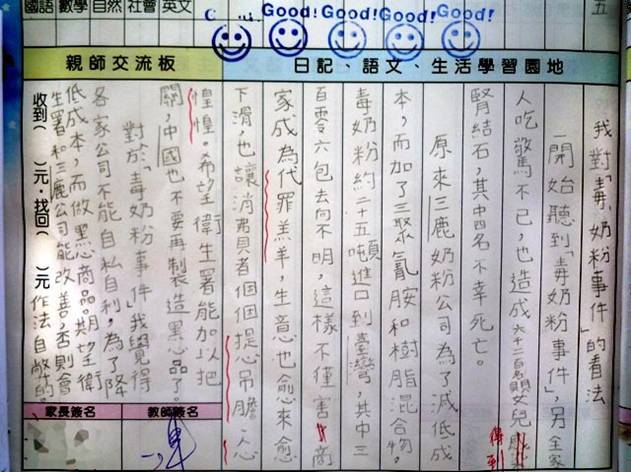 國語 數學 自然 社會 英文
五
Good! Good! Good! Good!
親師交流板
日記、語文、生活學習園地
我對「毒奶粉事件」的看法
一開始聽到「毒奶粉事件」,另全家
人吃驚不已,也造成六十二百顆女兒
得到
腎結石,其中四名不幸死亡。
原來三鹿奶粉公司為了減低成
本,而加了三聚氰胺和樹脂混合物。
毒奶粉約二十五噸進口到臺灣,其中三
百零六包去向不明,這樣不僅害商
家成為代罪羔羊,生意也愈來愈
下滑,也讓消費者個個提心吊膽、人心
惶惶。希望衛生署能加以把
關,中國也不要再製造黑心品了。
對於「毒奶粉事件」我覺得
各家公司不能自私自利,為了降
低成本,而做黑心商品。期望衛
生署和三鹿公司能改善,否則會
作法自斃的。
收到( )元.找回( )元
家長簽名
教師簽名